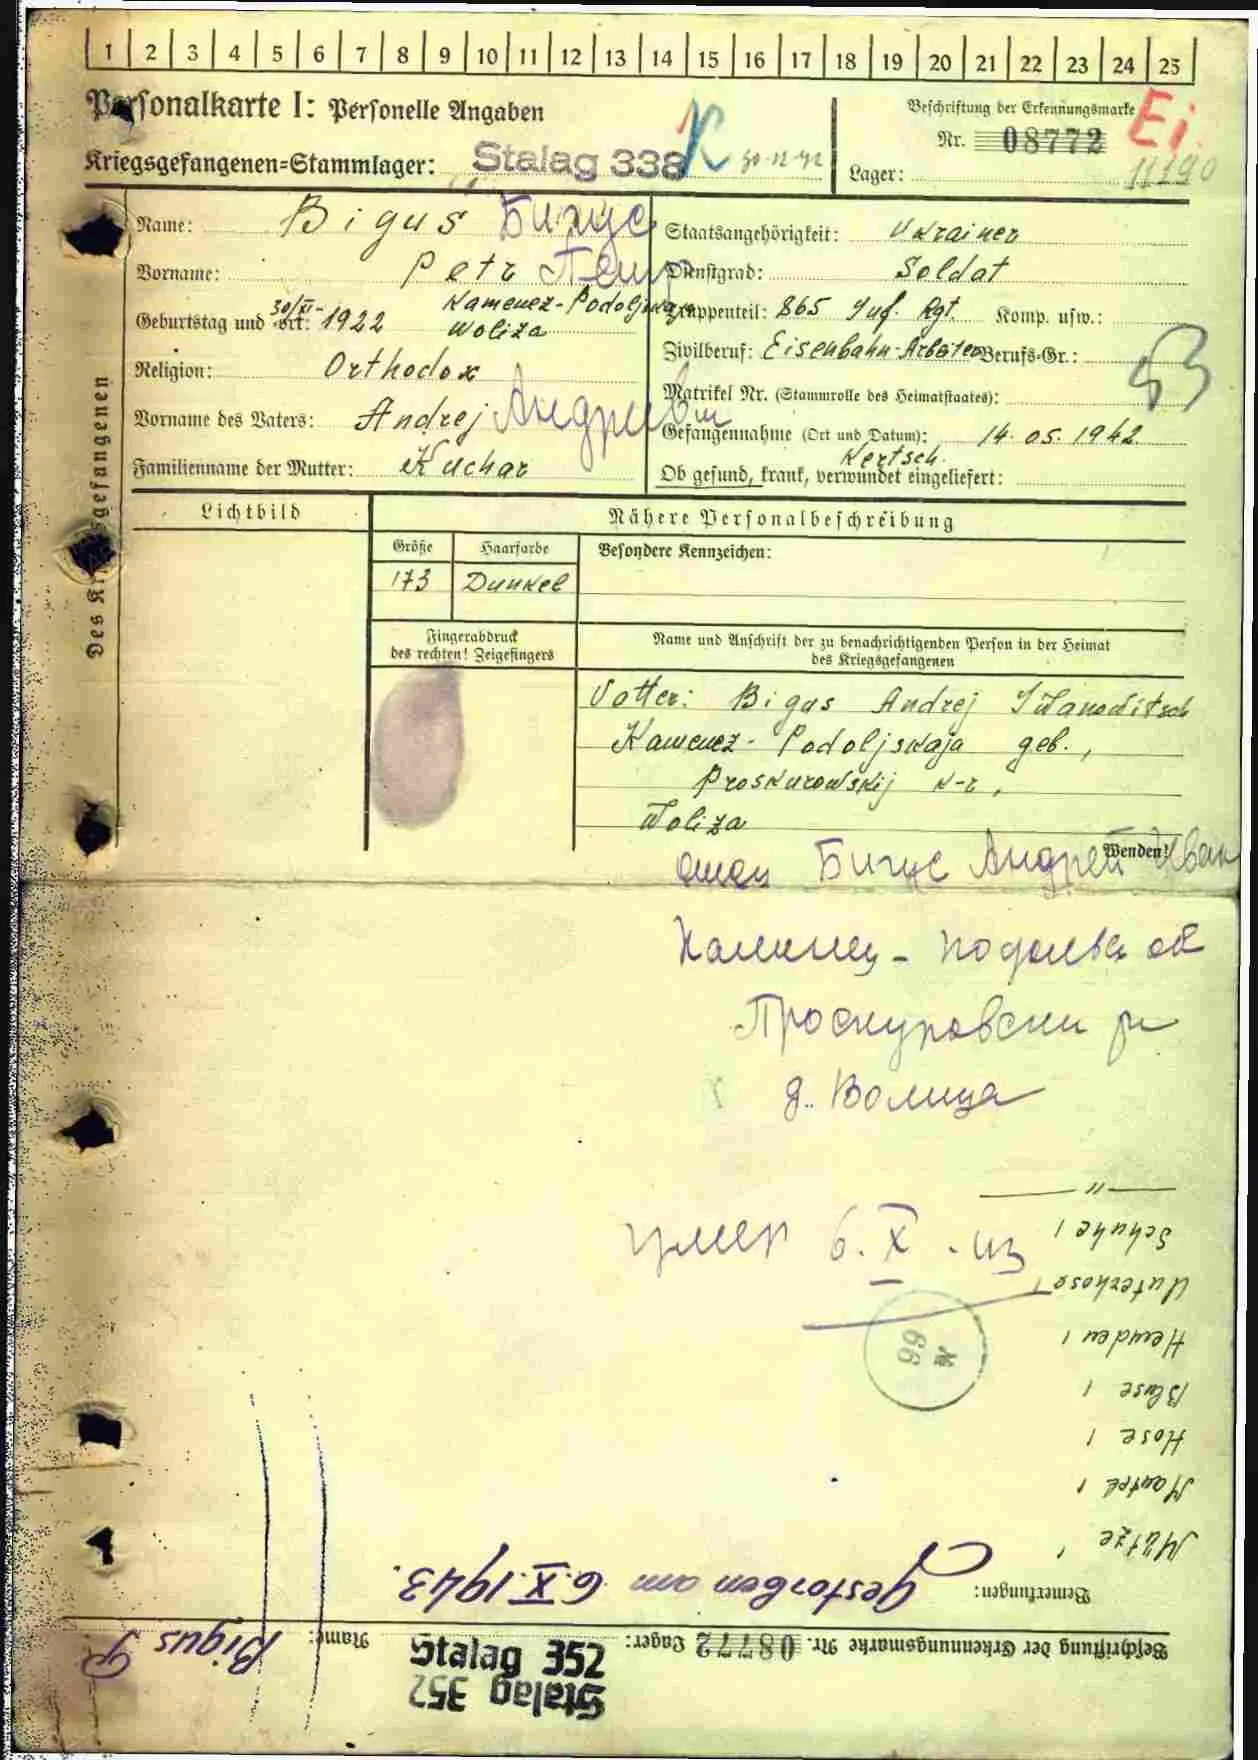 1 2 3 4 5 6 7 8 9 10 11 12 13 14 15 16 17 18 19 20 21 22 23 24 25
Personalkarte I: Personelle Angaben
Kriegsgefangenen=Stammlager: Stalag 338 K 30-12-42
Beschriftung der Erkennungsmarke
Nr. 08772 Ei.
Lager: 11190
Des Kriegsgefangenen
Name: Bigus Бигус
Vorname: Petr Петр
Geburtstag und =ort: 30/XI- 1922 Kamenez-Podoljskaja
Woliza
Religion: Orthodox
Vorname des Vaters: Andrej Андреевич
Familienname der Mutter: Kuchar
Staatsangehörigkeit: Ukrainer
Dienstgrad: Soldat
Truppenteil: 865 Inf. Rgt. Komp. usw.:
Zivilberuf: Eisenbahn-Arbeiter Berufs=Gr.:
53
Matrikel Nr. (Stammrolle des Heimatstaates):
Gefangennahme (Ort und Datum): 14.05.1942
Kertsch.
Ob gesund, krank, verwundet eingeliefert:
Lichtbild
Nähere Personalbeschreibung
Größe Haarfarbe Besondere Kennzeichen:
173 Dunkel
Fingerabdruck
des rechten! Zeigefingers
Name und Anschrift der zu benachrichtigenden Person in der Heimat
des Kriegsgefangenen
Vatter: Bigus Andrej Iwanowitsch
Kamenez-Podoljskaja geb.,
Proskurowskij k-r,
Woliza
Wenden!
отец Бигус Андрей Иван
Каминец-Подольск об
Проскуровски рн
д. Волица
умер 6.X.43
"
Schuhe 1
Unterhose 1
Hemden 1
Bluse 1
Hose 1
Mantel 1
Mütze 1
66
Bemerkungen: Gestorben am 6.X.1943.
Beschriftung der Erkennungsmarke Nr. 08772 Lager: Stalag 352 Name: Bigus P
Stalag 352